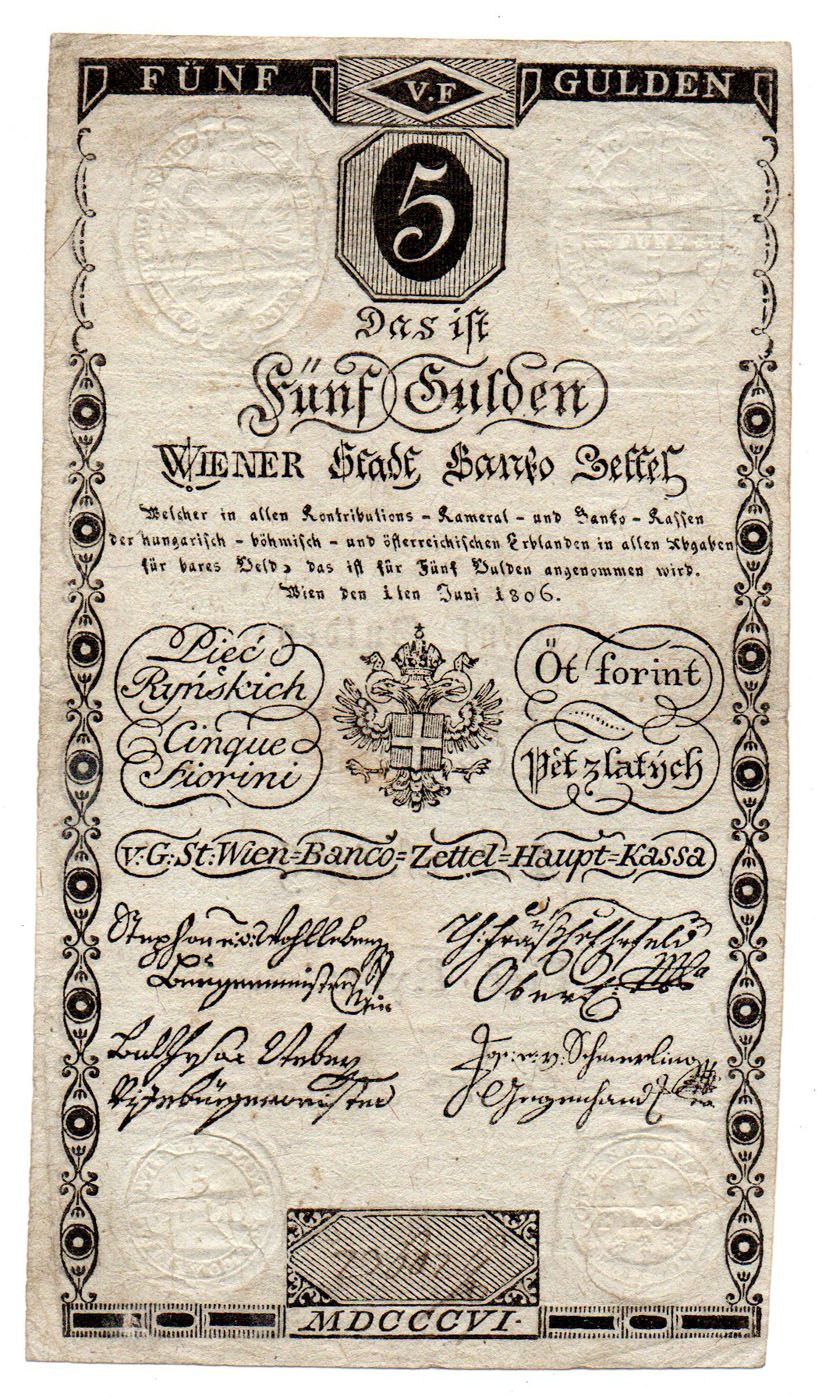 FÜNF V.F GULDEN
5
Das ist
Fünf Gulden
WIENER Stadt Banko Zettel
Welcher in allen Kontributions - Kameral - und Banko - Kassen
der hungarisch - böhmisch - und österreichischen Erblanden in allen Abgaben
für bares Geld, das ist für Fünf Gulden angenommen wird.
Wien den 1ten Juni 1806.
Pięć
Ryńskich
Cinque
Fiorini
Öt forint
Pět zlatých
V:G:St:Wien=Banco=Zettel=Haupt=Kassa
Stephan Wohlleben
Burgermeister
Ober
Balthasar Weber
Vizeburgermeister
Jos: v: Schmerling
Gegenhand
FÜNF
MDCCCVI.